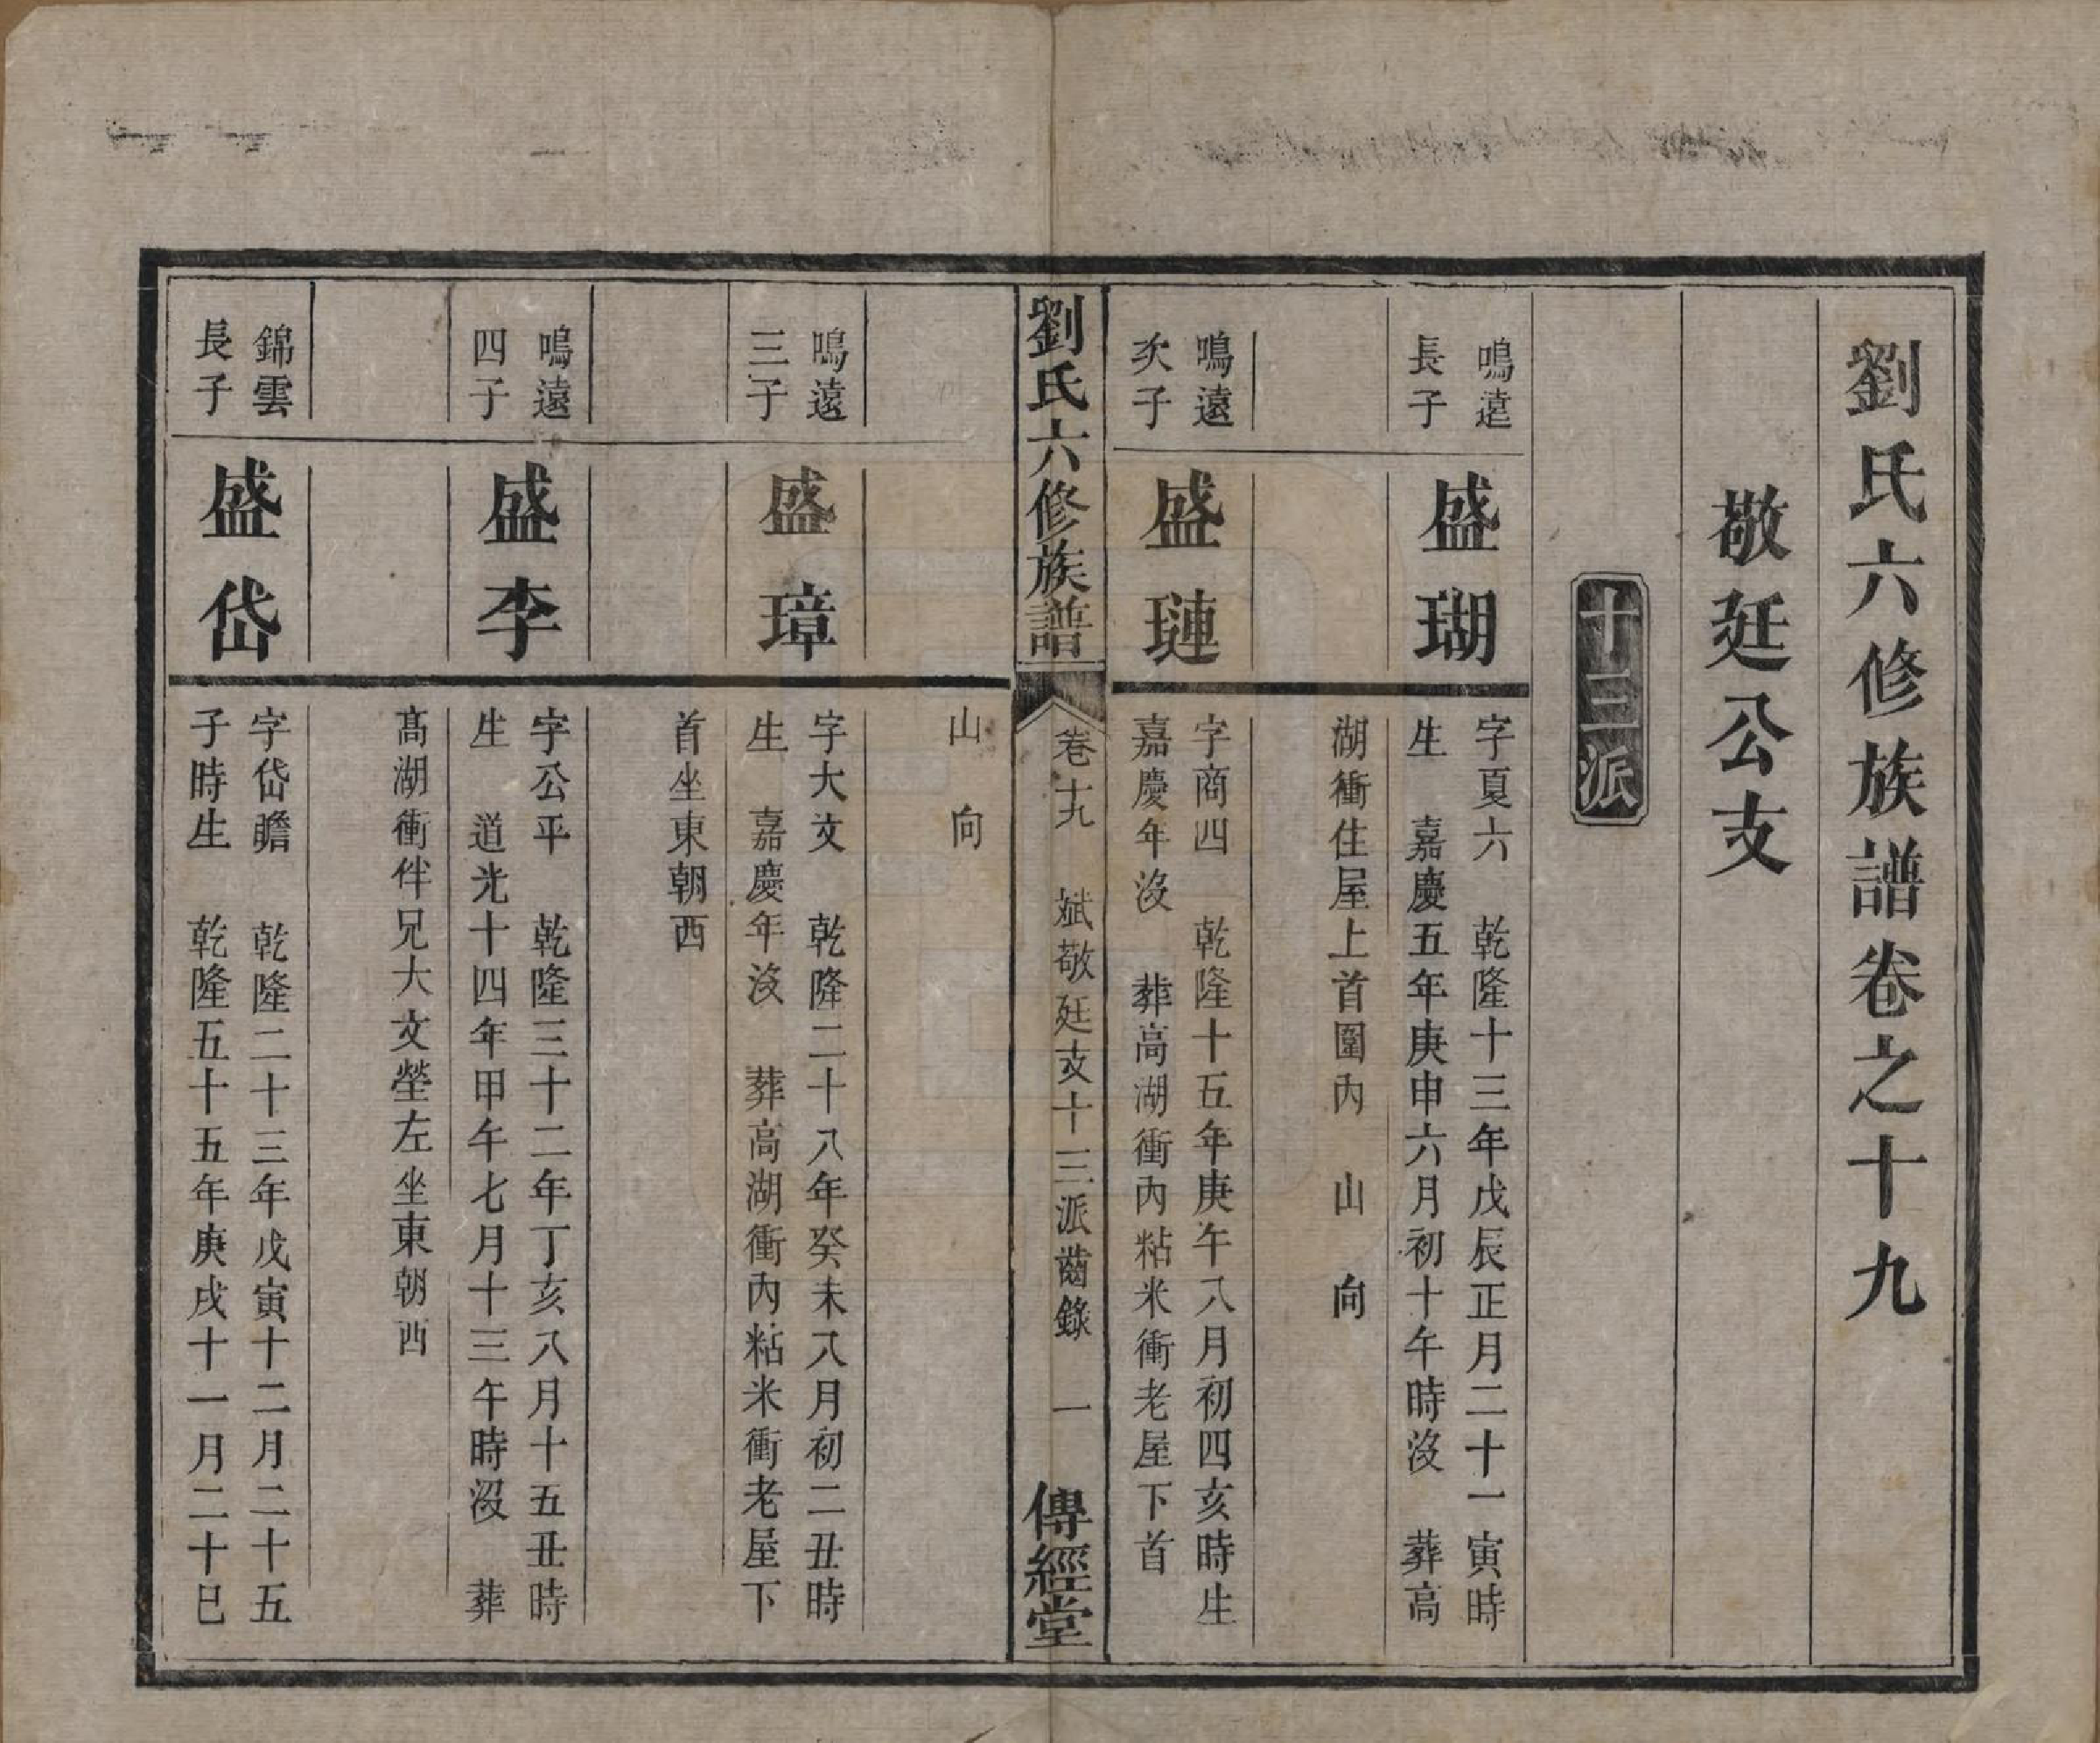 劉氏六修族譜卷之十九
敬廷公支
十三派
鳴遠
長子
盛瑚
字夏六 乾隆十三年戊辰正月二十一寅時
生 嘉慶五年庚申六月初十午時沒 葬高
湖衝住屋上首圍內 山 向
鳴遠
次子
盛璉
字商四 乾隆十五年庚午八月初四亥時生
嘉慶年沒 葬高湖衝內粘米衝老屋下首
劉氏六修族譜
卷十九 斌敬廷支十三派齒錄 一
傳經堂
山 向
鳴遠
三子
盛璋
字大文 乾隆二十八年癸未八月初二丑時
生 嘉慶年沒 葬高湖衝內粘米衝老屋下
首坐東朝西
鳴遠
四子
盛李
字公平 乾隆三十二年丁亥八月十五丑時
生 道光十四年甲午七月十三午時沒 葬
高湖衝伴兄大文塋左坐東朝西
錦雲
長子
盛岱
字岱瞻 乾隆二十三年戊寅十二月二十五
子時生 乾隆五十五年庚戌十一月二十巳